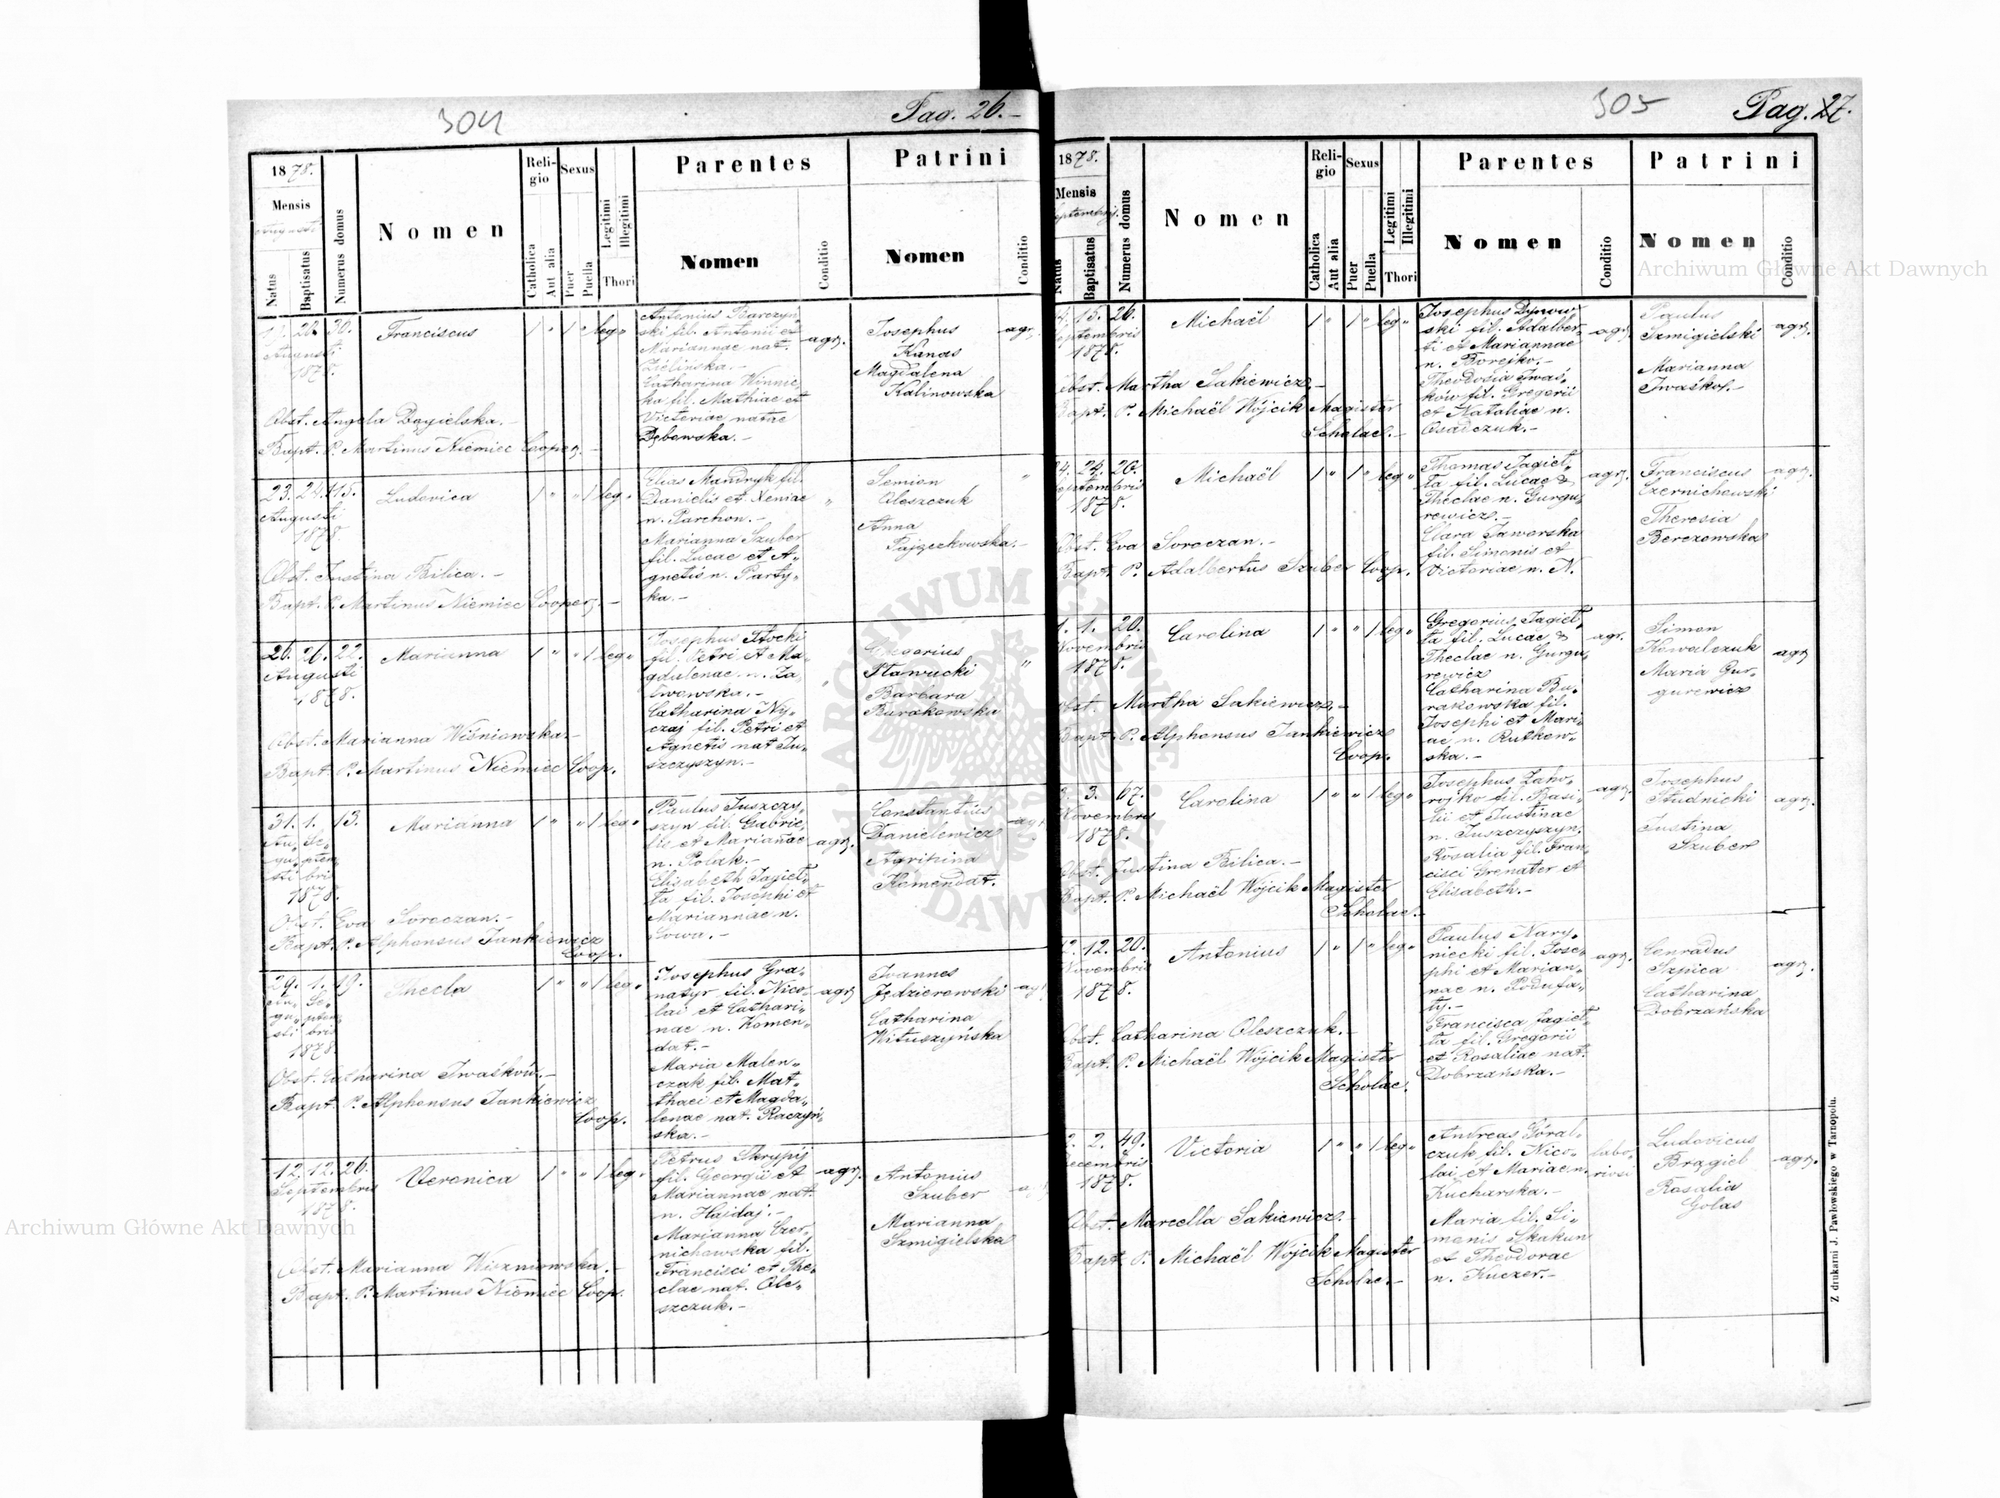 304
Pag. 26.
1878.
Mensis
Augusti
Natus
Baptisatus
Numerus domus
Nomen
Religio
Catholica
Aut alia
Sexus
Puer
Puella
Legitimi
Illegitimi
Thori
Parentes
Nomen
Conditio
Patrini
Nomen
Conditio
24. 30. Franciscus 1 " 1 " leg "
Augusti
1878.
Antonius Barczyń-
ski fil. Antonii et
Mariannae nat.
Zielińska.-
Catharina Winnic-
ka fil. Mathiae et
Victoriae natae
Dębowska.-
agr.
Josephus
Kanas
Magdalena
Kalinowska
agr.
Obst. Angela Dagielska.-
Bapt. P. Martinus Niemiec Cooper.-
23. 24. 115. Ludovica 1 " " 1 leg "
Augusti
1878.
Elias Mandryk fil.
Danielis et Xeniae
n. Parchon.-
Marianna Szuber
fil. Lucae et A-
gnetis n. Party-
ka.-
"
Semion
Oleszczuk
Anna
Pajęczkowska.-
"
Obst. Justina Bilica.-
Bapt. P. Martinus Niemiec Cooper.-
26. 26. 22. Marianna 1 " " 1 leg "
Augusti
1878.
Josephus
fil. Petri et Ma-
gdalenae n. Za-
lewska.-
Catharina Ny-
czaj fil. Petri et
Agnetis nat Ju-
szczyszyn.-
Gregorius
Sławucki
Barbara
Burakowska
"
Obst. Marianna Wiśniowska.-
Bapt. P. Martinus Niemiec Coop.
31. 1. 13. Marianna 1 " " 1 leg "
Au- Se-
gu- ptem
sti bris
1878.
Paulus Juszczy-
szyn fil. Gabrie-
lis et Mariannae
n. Polak.-
Elisabeth Jagieł-
ła fil. Josephi et
Mariannae n.
Sowa.-
agr.
Constantius
Danielewicz
Agrihina
Komendat.
agr.
Obst. Eva Soroczan.-
Bapt. P. Alphonsus Jankiewicz
Coop.
29. 1. 19. Thecla 1 " " 1 leg "
Au- Se-
gu- ptem
sti bris
1878.
Josephus Gra-
natyr fil. Nico-
lai et Cathari-
nae n. Komen-
dat.-
Maria Malen-
czak fil. Mat-
thaei et Magda-
lenae nat. Raczyń-
ska.-
agr.
Joannes
Jędzierewski
Catharina
Wituszyńska
agr.
Obst. Catharina Iwaśków.-
Bapt. P. Alphonsus Jankiewicz
Coop.
12. 12. 26. Veronica 1 " " 1 leg "
Septembris
1878.
Petrus Skrypij
fil. Georgii et
Mariannae nat.
n. Hajdaj.-
Marianna Czer-
nichowska fil.
Francisci et The-
clae nat. Ole-
szczuk.-
agr.
Antonius
Szuber
Marianna
Szmigielska
Obst. Marianna Wiszniowska.-
Bapt. P. Martinus Niemiec Coop.
305
Pag. 27.
1878.
Mensis
Septembris
Natus
Baptisatus
Numerus domus
Nomen
Religio
Catholica
Aut alia
Sexus
Puer
Puella
Legitimi
Illegitimi
Thori
Parentes
Nomen
Conditio
Patrini
Nomen
Conditio
15. 26. Michaël 1 " 1 " leg "
Septembris
1878.
Josephus Dynow-
ski fil. Adalber-
ti et Mariannae
n. Borejko.-
Theodosia Iwaś-
ków fil. Gregorii
et Nataliae n.
Osadczuk.-
agr.
Paulus
Szmigielski
Marianna
Iwaśkow.-
agr.
Obst. Martha Sakiewicz.-
Bapt. P. Michaël Wójcik Magister
Scholae.-
24. 24. 20. Michaël 1 " 1 " leg "
Septembris
1878.
Thomas Jagieł-
ła fil. Lucae &
Theclae n. Gurgu-
rewicz.-
Clara Jaworska
fil. Simonis et
Victoriae n. N.
agr.
Franciscus
Czernichowski
Theresia
Berezowska
agr.
Obst. Eva Soroczan.-
Bapt. P. Adalbertus Szuber Coop.
1. 1. 20. Carolina 1 " " 1 leg "
Novembris
1878.
Gregorius Jagieł-
ła fil. Lucae &
Theclae n. Gurgu-
rewicz
Catharina Bu-
rakowska fil.
Josephi et Mari-
ae n. Rutkow-
ska.-
agr.
Simon
Kowalczuk
Maria Gur-
gurewicz
agr.
Obst. Martha Sakiewicz.-
Bapt. P. Alphonsus Jankiewicz
Coop.
3. 67. Carolina 1 " " 1 leg "
Novembris
1878.
Josephus Zaho-
rojko fil. Basi-
lii et Justinae
n. Juszczyszyn.
Rosalia fil. Fran-
cisci Grenater et
Elisabeth.-
agr.
Josephus
Studnicki
Justina
Szuber
agr.
Obst. Justina Bilica.-
Bapt. P. Michaël Wójcik Magister
Scholae.-
12. 12. 20. Antonius 1 " 1 " leg "
Novembris
1878.
Paulus Nary-
niecki fil. Jose-
phi et Marian-
nae n. Podufa-
ły.-
Francisca Jagieł-
ła fil. Gregorii
et Rosaliae nat.
Dobrzańska.-
agr.
Conradus
Szpica
Catharina
Dobrzańska
agr.
Obst. Catharina Oleszczuk.-
Bapt. P. Michaël Wójcik Magister
Scholae.
2. 2. 49. Victoria 1 " " 1 leg "
Decembris
1878.
Andreas Góral-
czuk fil. Nico-
lai et Mariae n.
Kucharska.-
Maria fil. Si-
monis Skakun
et Theodorae
n. Kuczer.-
labo-
riosi
Ludovicus
Bragiel
Rosalia
Golas
agr.
Obst. Marcella Sakiewicz.-
Bapt. P. Michaël Wójcik Magister
Scholae.-
Z drukarni J. Pawłowskiego w Tarnopolu.
Archiwum Główne Akt Dawnych
Archiwum Główne Akt Dawnych
ARCHIWUM GŁÓWNE AKT DAWNYCH